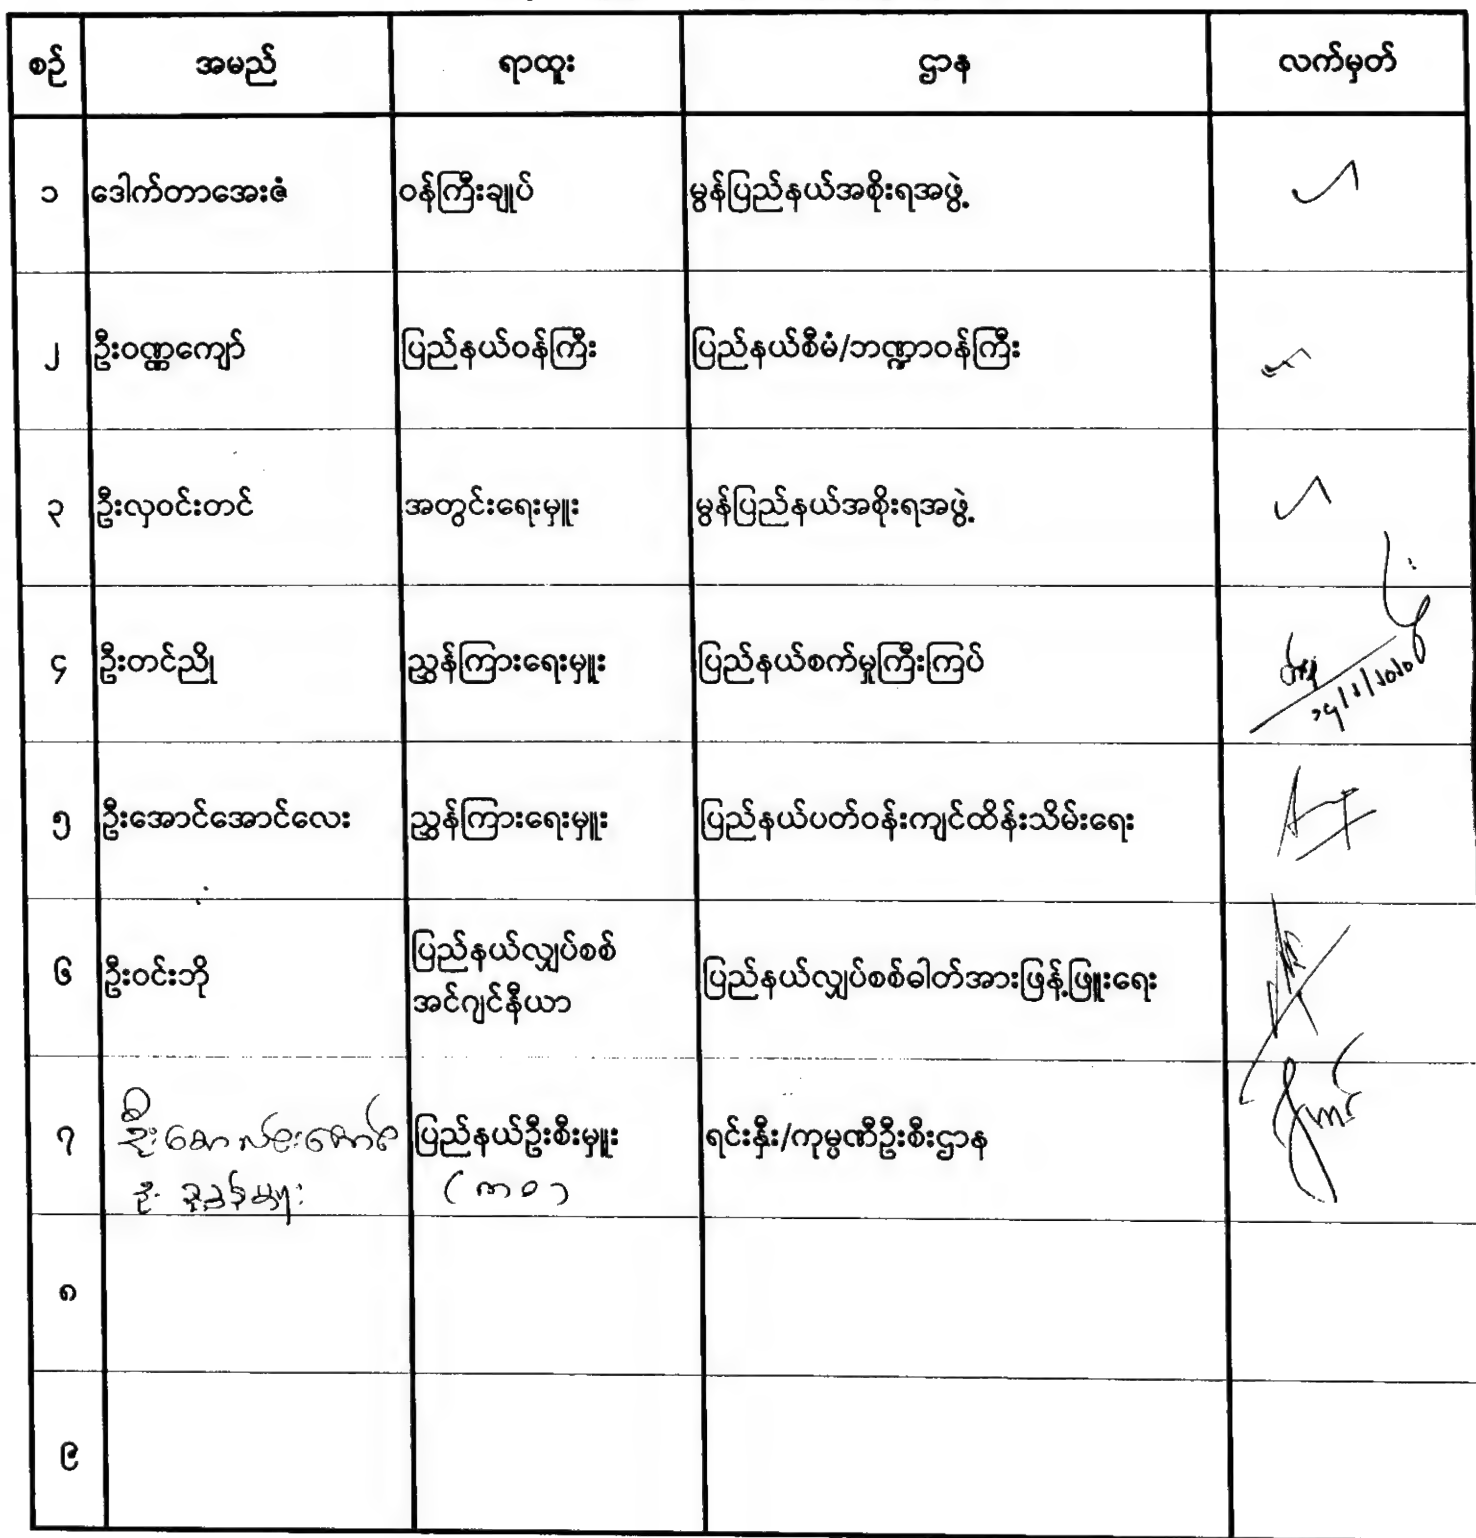 စဉ် အမည် ရာထူး ဌာန လက်မှတ်
၁ ဒေါက်တာအေးဇံ ဝန်ကြီးချုပ် မွန်ပြည်နယ်အစိုးရအဖွဲ့
၂ ဦးဝဏ္ဏကျော် ပြည်နယ်ဝန်ကြီး ပြည်နယ်စီမံ/ဘဏ္ဍာဝန်ကြီး
၃ ဦးလှဝင်းတင် အတွင်းရေးမှူး မွန်ပြည်နယ်အစိုးရအဖွဲ့
၄ ဦးတင်ညို ညွှန်ကြားရေးမှူး ပြည်နယ်စက်မှုကြီးကြပ်
၅ ဦးအောင်အောင်လေး ညွှန်ကြားရေးမှူး ပြည်နယ်ပတ်ဝန်းကျင်ထိန်းသိမ်းရေး
၆ ဦးဝင်းဘို ပြည်နယ်လျှပ်စစ် ပြည်နယ်လျှပ်စစ်ဓါတ်အားဖြန့်ဖြူးရေး
အင်ဂျင်နီယာ
၇ ပြည်နယ်ဦးစီးမှူး ရင်းနှီး/ကုမ္ပဏီဦးစီးဌာန
၈
၉